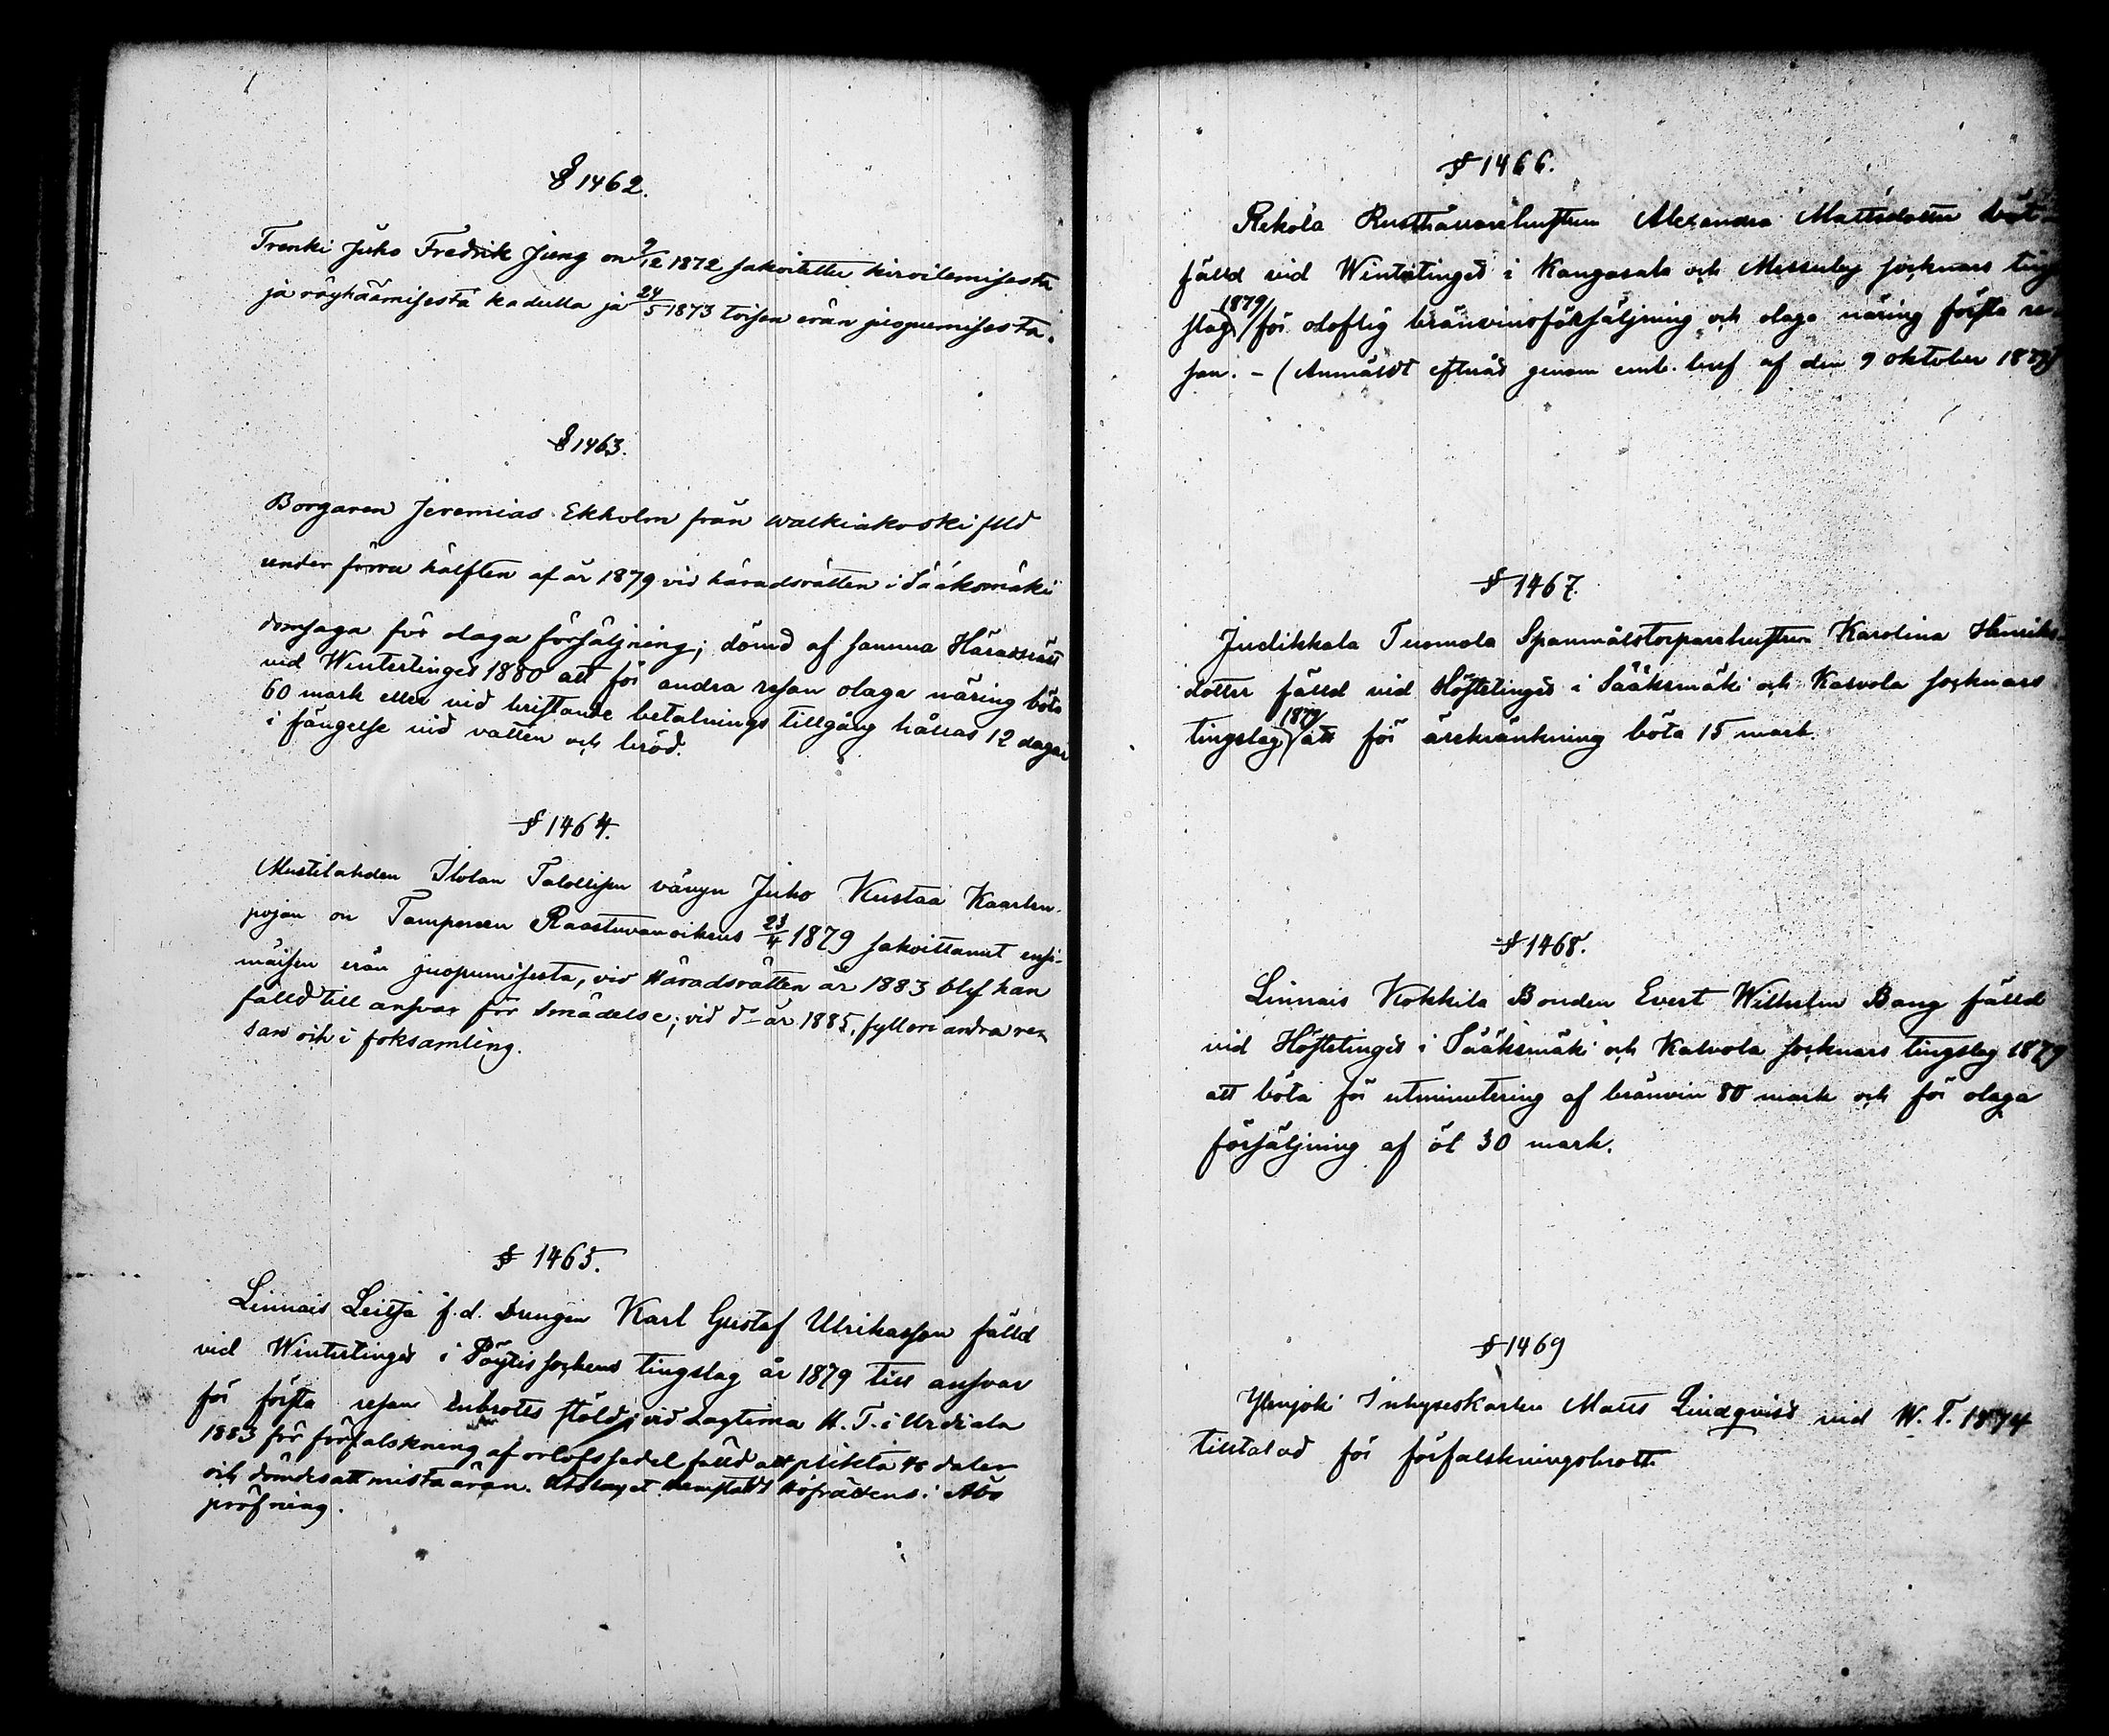 § 1462.
Trenki Juho Fredrik Jung on 9/12 1872 sakoitettu kiroilemisesta
ja röyhäämisestä kadulla ja 24/5 1873 toisen erän juopumisesta.
§ 1463.
Borgaren Jeremias Ekholm från Walkiakoski fälld
under förra hälften af år 1879 vid häradsrätten i Sääksmäki
domsaga för olaga försäljning; dömd af samma Häradsrätt
vid Wintertinget 1880 att för andra resan olaga näring böta
60 mark eller vid bristande betalnings tillgång hållas 12 dagar
i fängelse vid vatten och bröd.
§ 1464.
Mustilahden Ilolan Talollisen vävyn Juho Kustaa Kaarlen-
pojan on Tampereen Raastuvanoikeus 23/4 1879 sakoittanut ensi-
mäisen erän juopumisesta, vid Häradsrätten år 1883 blef han
fälld till ansvar för smädelse; vid d:o år 1885, fylleri andra re-
san och i folksamling.
§ 1465.
Linnais Leitsja f.d. Drengen Karl Gustaf Ulrikasson fälld
vid Wintertinget i Pöytis sockens tingslag år 1879 till ansvar
för första resan inbrotts stöld; vid Lagtima H. T. i Urdiala
1883 för förfalskning af orlofssedel fälld att plikta 48 daler
och dömdes att mista äran. Utslaget Hofrättens i Åbo
pröfning.
§ 1466.
Rekola Rusthållarehustrun Alexandra Mattsdotter
fälld vid Wintertinget i Kangasala och Messuby socknars ting-
slag 1879 för oloflig bränvinsförsäljning och olaga näring första re-
san. – (Anmäldt genom emb. bref af den 9 oktober 1879)
§ 1467.
Judikkala Tuomola Spanmålstorparehustrun Karolina Henriks-
dotter fälld vid Höstetinget i Sääksmäki och Kalvola socknars
tingslag 1879 att för ärekränkning böta 15 mark.
§ 1468.
Linnais Kokkila Bonden Evert Wilhelm Bang fälld
vid Höstetinget i Sääksmäki och Kalvola socknars tingslag 1879
att böta för utminutering af bränvin 80 mark och för olaga
försäljning af öl 30 mark.
§ 1469
Ylenjoki Inhyseskarlen Matts Lindqvist vid W. T. 1874
tilltalad för förfalskningsbrott